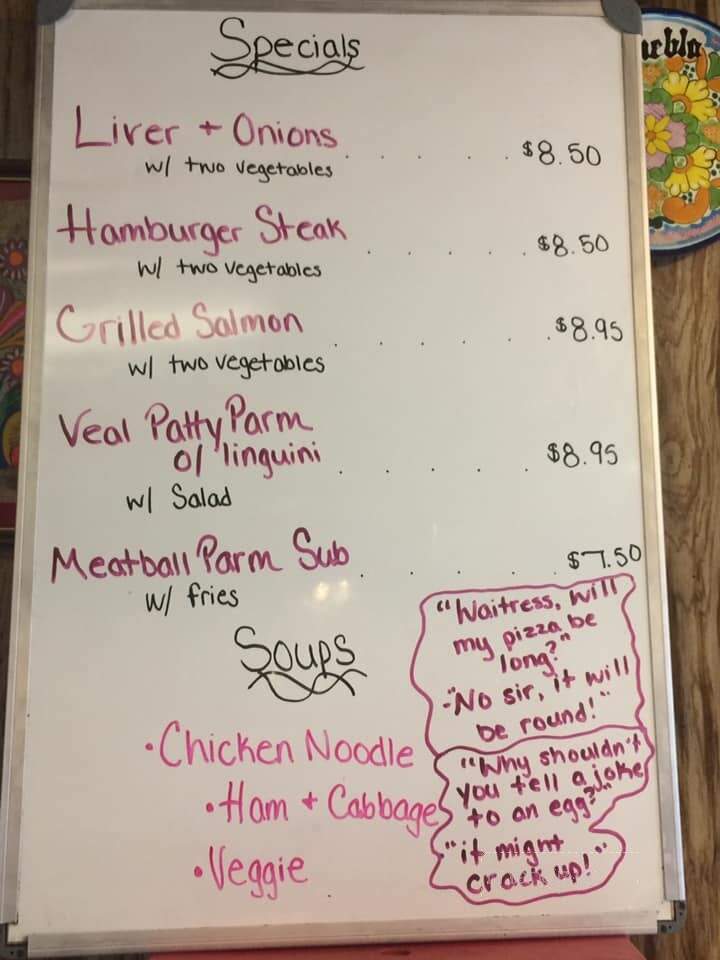 Specials
Liver + Onions . . . . . $8.50
w/ two vegetables
Hamburger Steak . . . . . $8.50
w/ two vegetables
Grilled Salmon . . . . . . $8.95
w/ two vegetables
Veal Patty Parm
o/ linguini . . . . . $8.95
w/ Salad
Meatball Parm Sub . . . . . $7.50
w/ fries
Soups
• Chicken Noodle
• Ham + Cabbage
• Veggie
"Waitress, will
my pizza be
long?"
-"No sir, it will
be round!"
"Why shouldn't
you tell a joke
to an egg?"
"it might
crack up!"